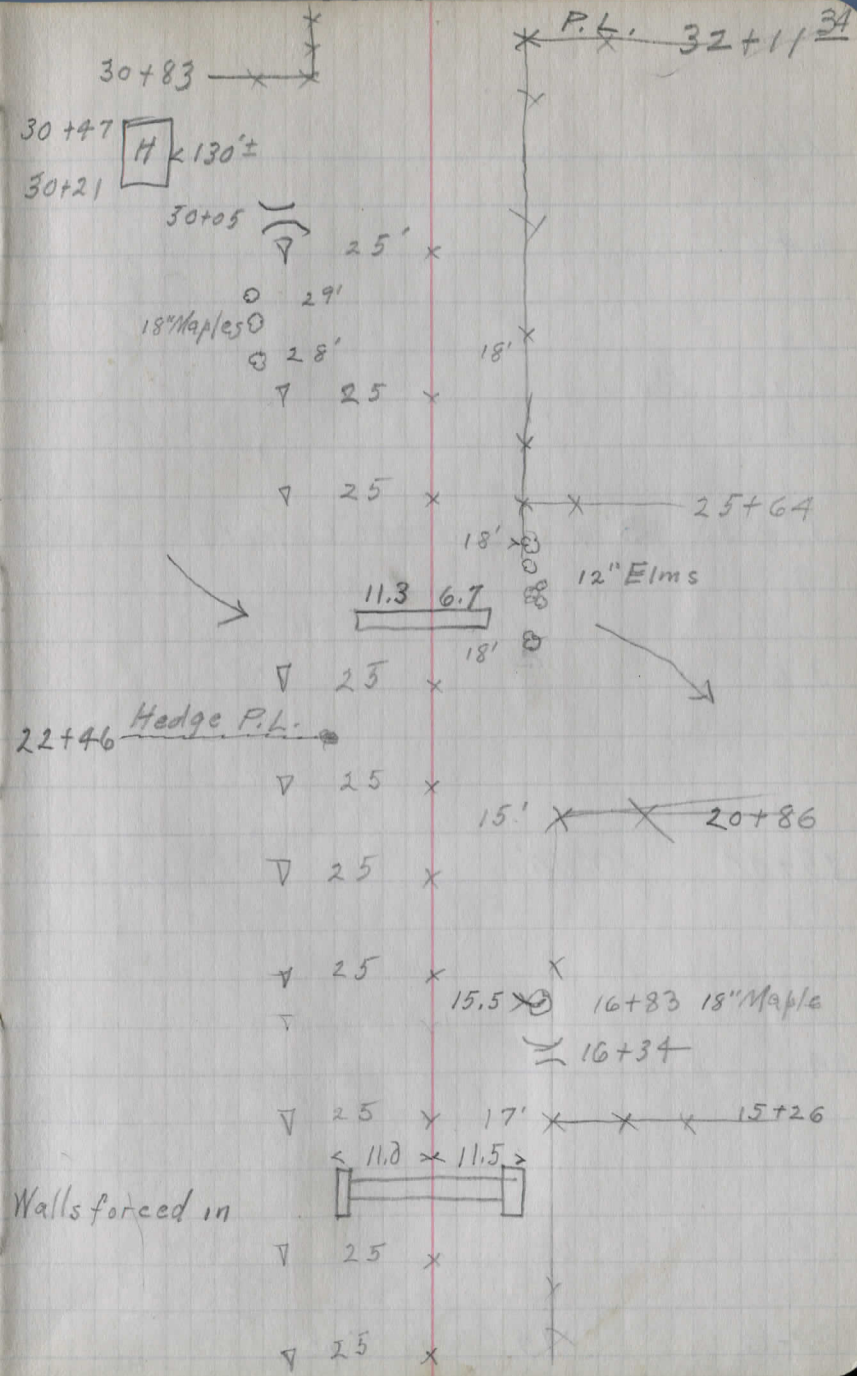 P.L. 32+11 34
30+83
30+47 H 130'±
30+21
30+05
25'
29'
18" Maples
28' 18'
25
25 25+64
18'
12" Elms
11.3 6.7
18'
25
22+46 Hedge P.L.
25
15' 20+86
25
25
15.5 16+83 18" Maple
16+34
25 17' 15+26
11.0 11.5
Walls forced in
25
25